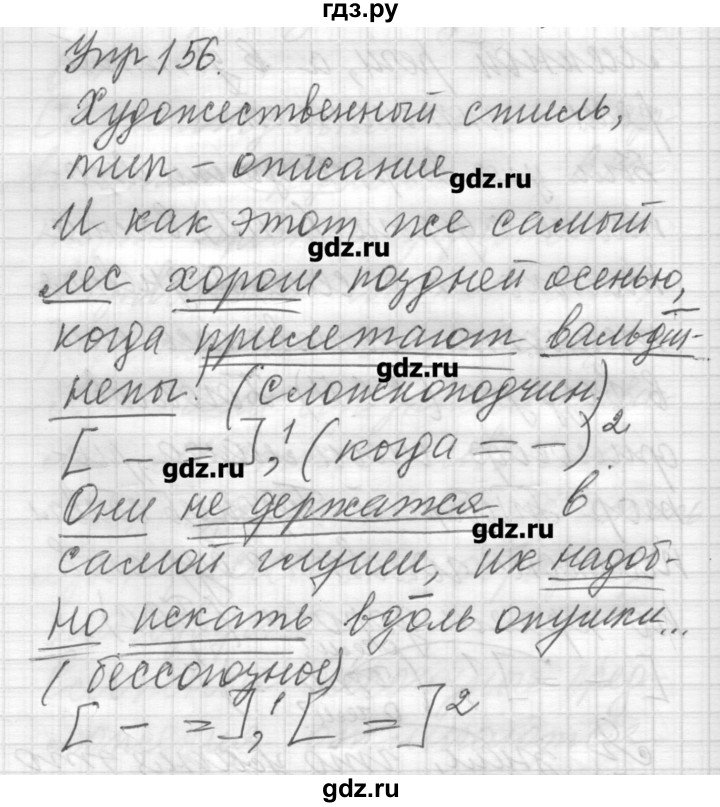 гдз.ру
Упр 156.
Художественный стиль,
тип – описание
gdz.ru
И как этот же самый
gdz.ru
лес хорош поздней осенью,
когда прилетают вальдш-
gdz.ru
непы! (сложноподчин)
[ – = ],¹ (когда = –)².
gdz.ru
Они не держатся в
gdz.ru
самой глуши, их надоб-
но искать вдоль опушки...
(бессоюзное)
[ – = ],¹ [ = ]²
gdz.ru